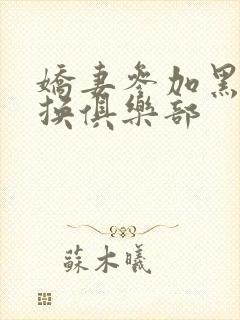 嬌妻參加黑
換俱樂部
蘇木曦